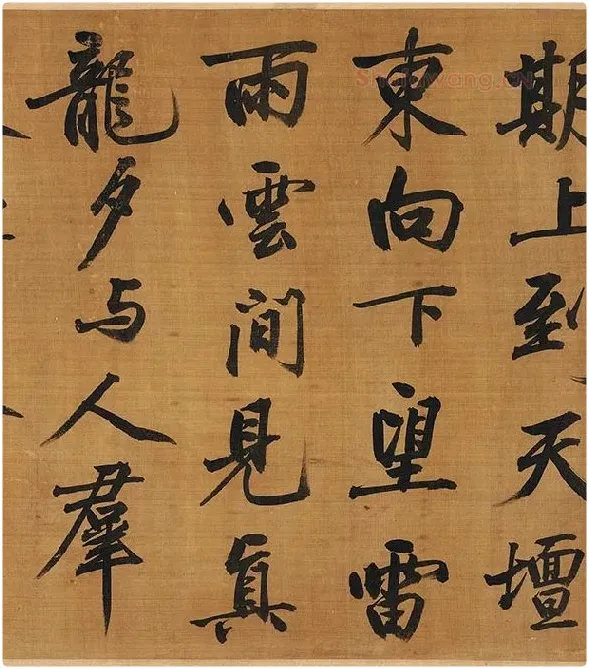 期上到天壇
東向下望雷
雨雲間見真
龍夕与人羣